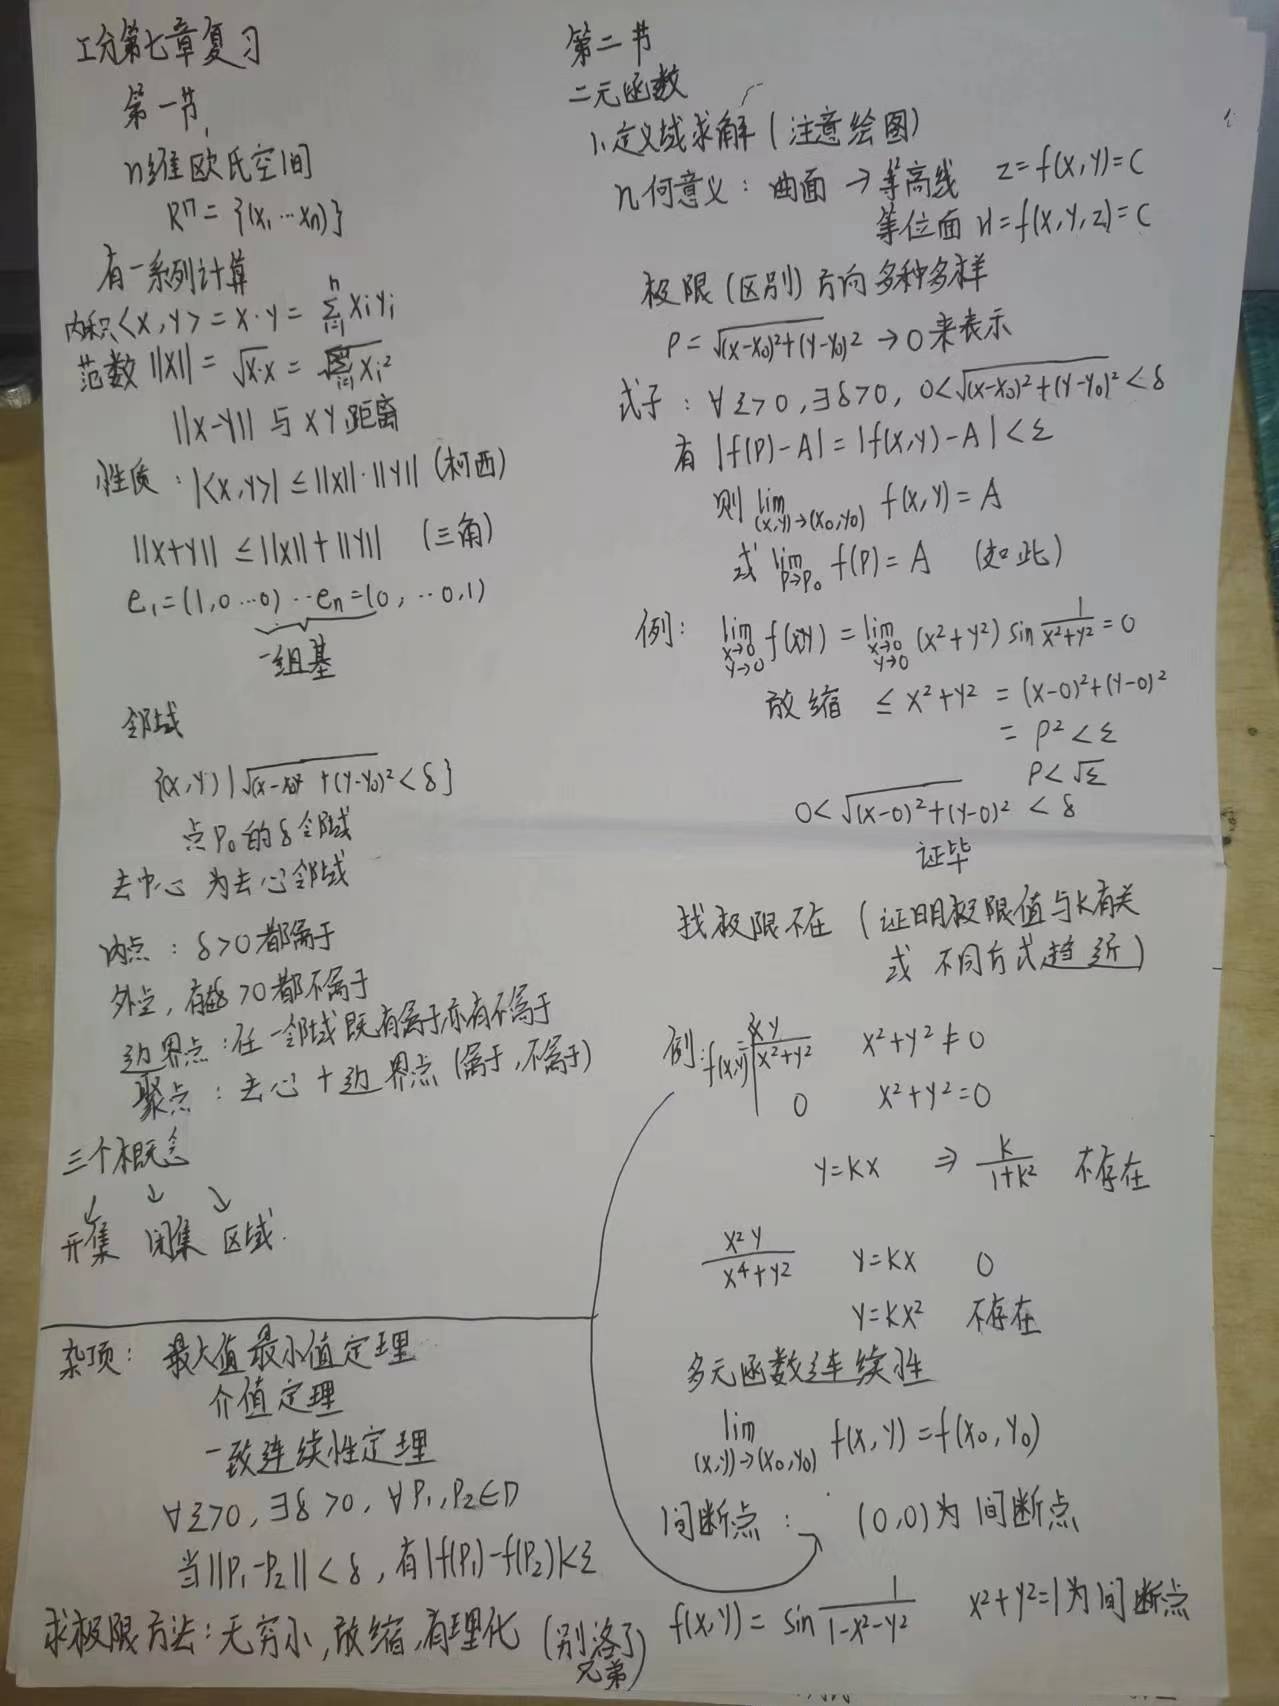 工分第七章复习
第一节
n维欧氏空间
Rⁿ = {(x₁ … xₙ)}
有一系列计算
内积<x, y> = x·y = ∑ᵢ₌₁ⁿ xᵢyᵢ
范数 ||x|| = √x·x = √∑ᵢ₌₁ⁿ xᵢ²
||x-y|| 与 x y 距离
性质：|<x, y>| ≤ ||x||·||y|| (柯西)
||x+y|| ≤ ||x|| + ||y|| (三角)
e₁=(1,0…0) … eₙ=(0, …0,1)
一组基
邻域
{(x,y) | √(x-x₀)² + (y-y₀)² < δ}
点P₀的δ邻域
去中心 为去心邻域
内点：δ>0都属于
外点，有δ>0都不属于
边界点：任一邻域既有属于,亦有不属于
聚点：去心 + 边界点 (属于,不属于)
三个概念
↙ ↓ ↘
开集 闭集 区域.
杂项：最大值最小值定理
介值定理
一致连续性定理
∀ε>0, ∃δ>0, ∀P₁,P₂∈D
当||P₁-P₂||<δ, 有|f(P₁)-f(P₂)|<ε
求极限方法：无穷小,放缩,有理化 (别落了
兄弟)
第二节
二元函数
1、定义域求解 (注意绘图)
几何意义：曲面 → 等高线 z=f(x,y)=C
等位面 u=f(x,y,z)=C
极限 (区别) 方向多种多样
ρ = √(x-x₀)²+(y-y₀)² → 0 来表示
式子：∀ε>0, ∃δ>0, 0<√(x-x₀)²+(y-y₀)² <δ
有 |f(P)-A| = |f(x,y)-A| < ε
则 lim (x,y)→(x₀,y₀) f(x,y) = A
或 lim P→P₀ f(P) = A (如此)
例：lim x→0 y→0 f(xy) = lim x→0 y→0 (x²+y²) sin 1/(x²+y²) = 0
放缩 ≤ x²+y² = (x-0)²+(y-0)²
= ρ² < ε
ρ < √ε
0 < √(x-0)²+(y-0)² < δ
证毕
找极限不在 (证明极限值与k有关
或 不同方式趋近)
例：f(x,y)= xy/(x²+y²) x²+y²≠0
0 x²+y²=0
y=kx ⇒ k/(1+k²) 不存在
x²y/(x⁴+y²) y=kx 0
y=kx² 不存在
多元函数连续性
lim (x,y)→(x₀,y₀) f(x,y)=f(x₀,y₀)
间断点： (0,0)为间断点
f(x,y) = sin 1/(1-x²-y²) x²+y²=1为间断点